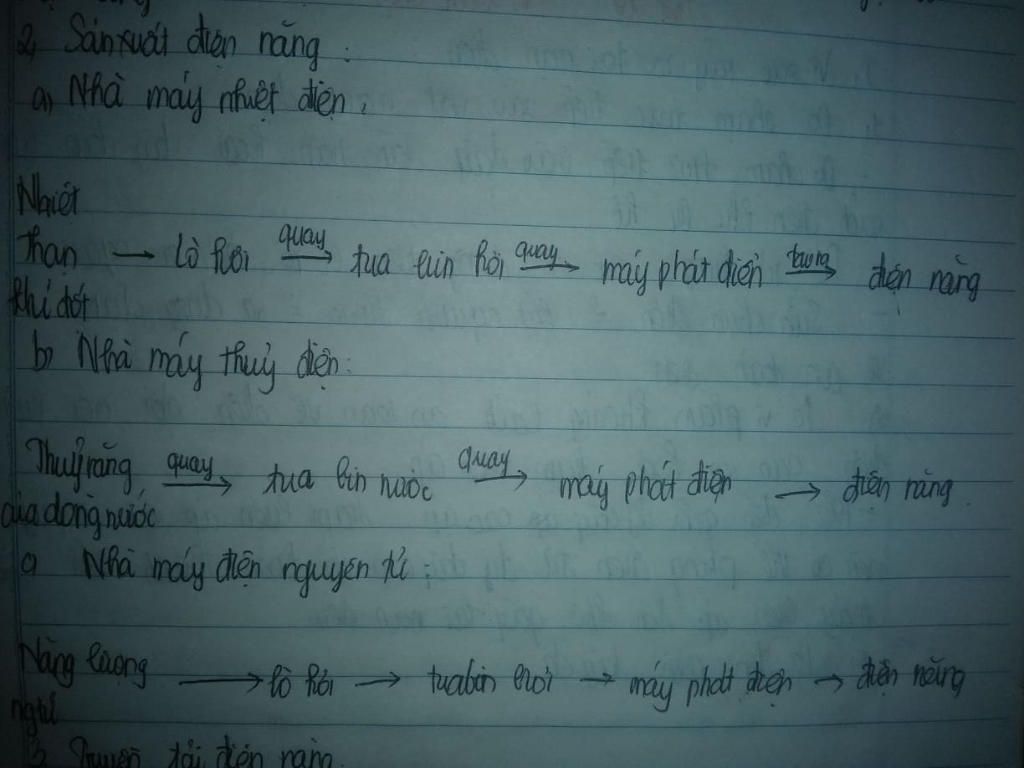 2, Sản xuất điện năng :
a) Nhà máy nhiệt điện.
Nhiệt
than → lò hơi quay → tua bin hơi quay → máy phát điện tạo ra → điện năng
khí đốt
b) Nhà máy thuỷ điện:
Thuỷ năng quay → tua bin nước quay → máy phát điện → điện năng.
của dòng nước
Nhà máy điện nguyên tử;
Năng lượng → lò hơi → tuabin hơi → máy phát điện → điện năng
3. Truyền tải điện năng.